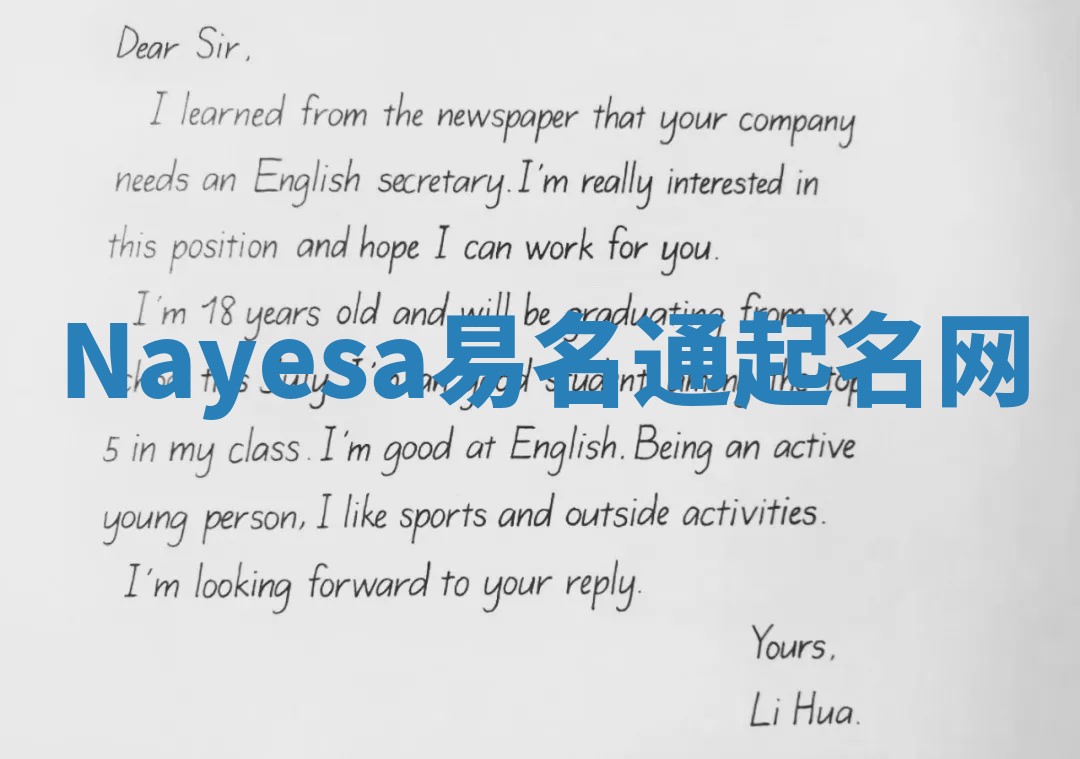 Dear Sir,
I learned from the newspaper that your company
needs an English secretary. I'm really interested in
this position and hope I can work for you.
I'm 18 years old and will be graduating from xx
Nayesa易名通起名网
this July. I'm a good student among the top
5 in my class. I'm good at English. Being an active
young person, I like sports and outside activities.
I'm looking forward to your reply.
Yours,
Li Hua.